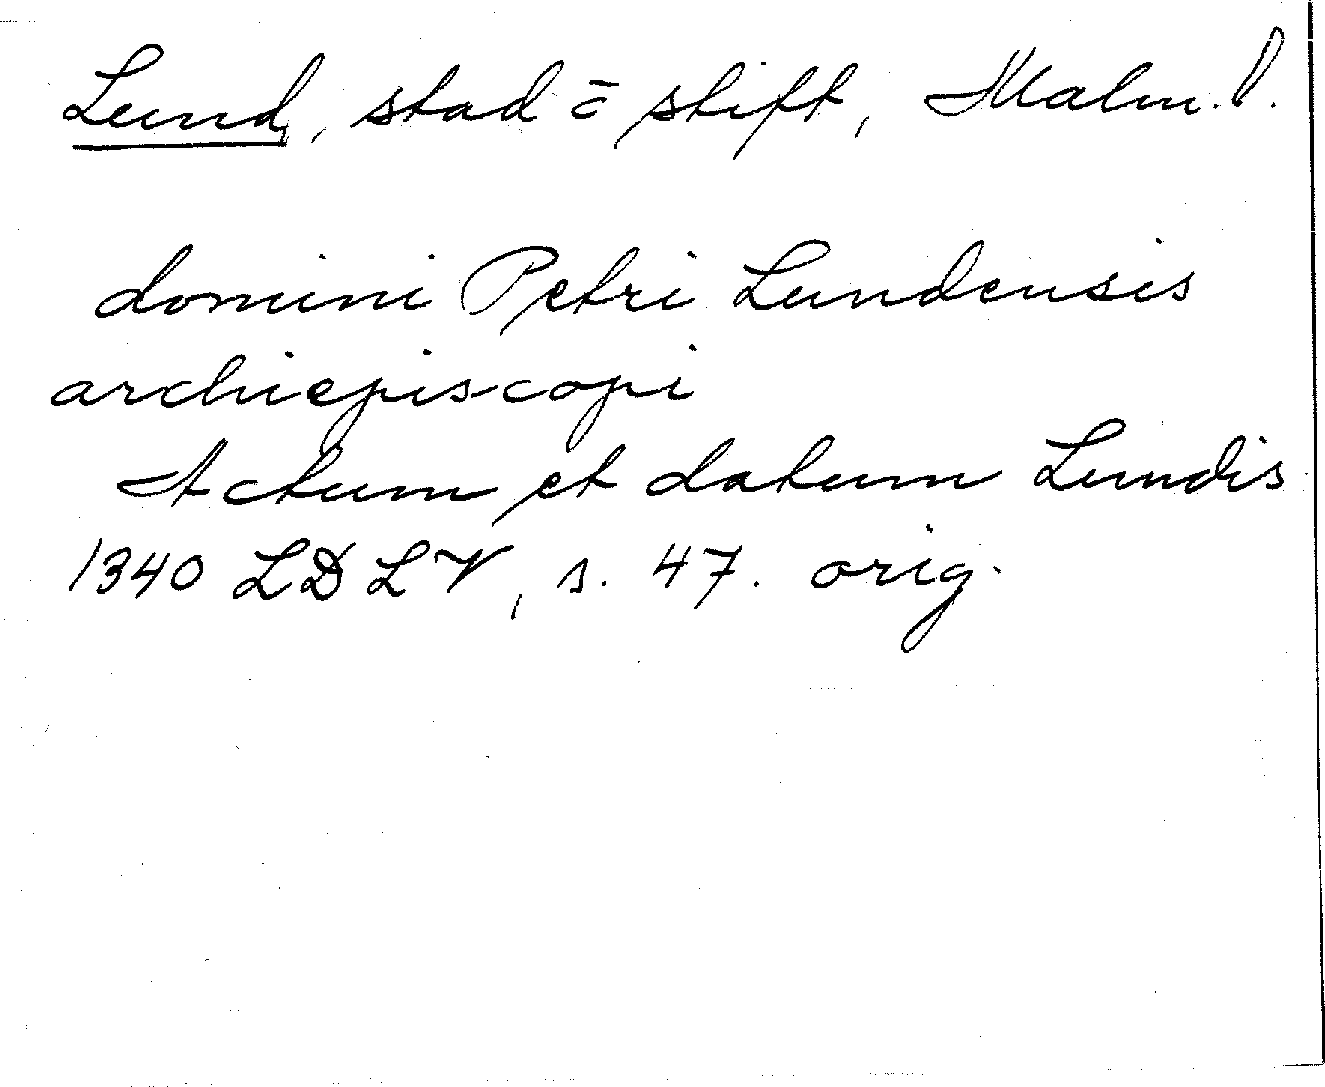 Lund, stad o stift, Malm. l.
domini Petri Lundensis
archiepiscopi
Actum et datum Lundis
1340 LDLV, s. 47. orig.